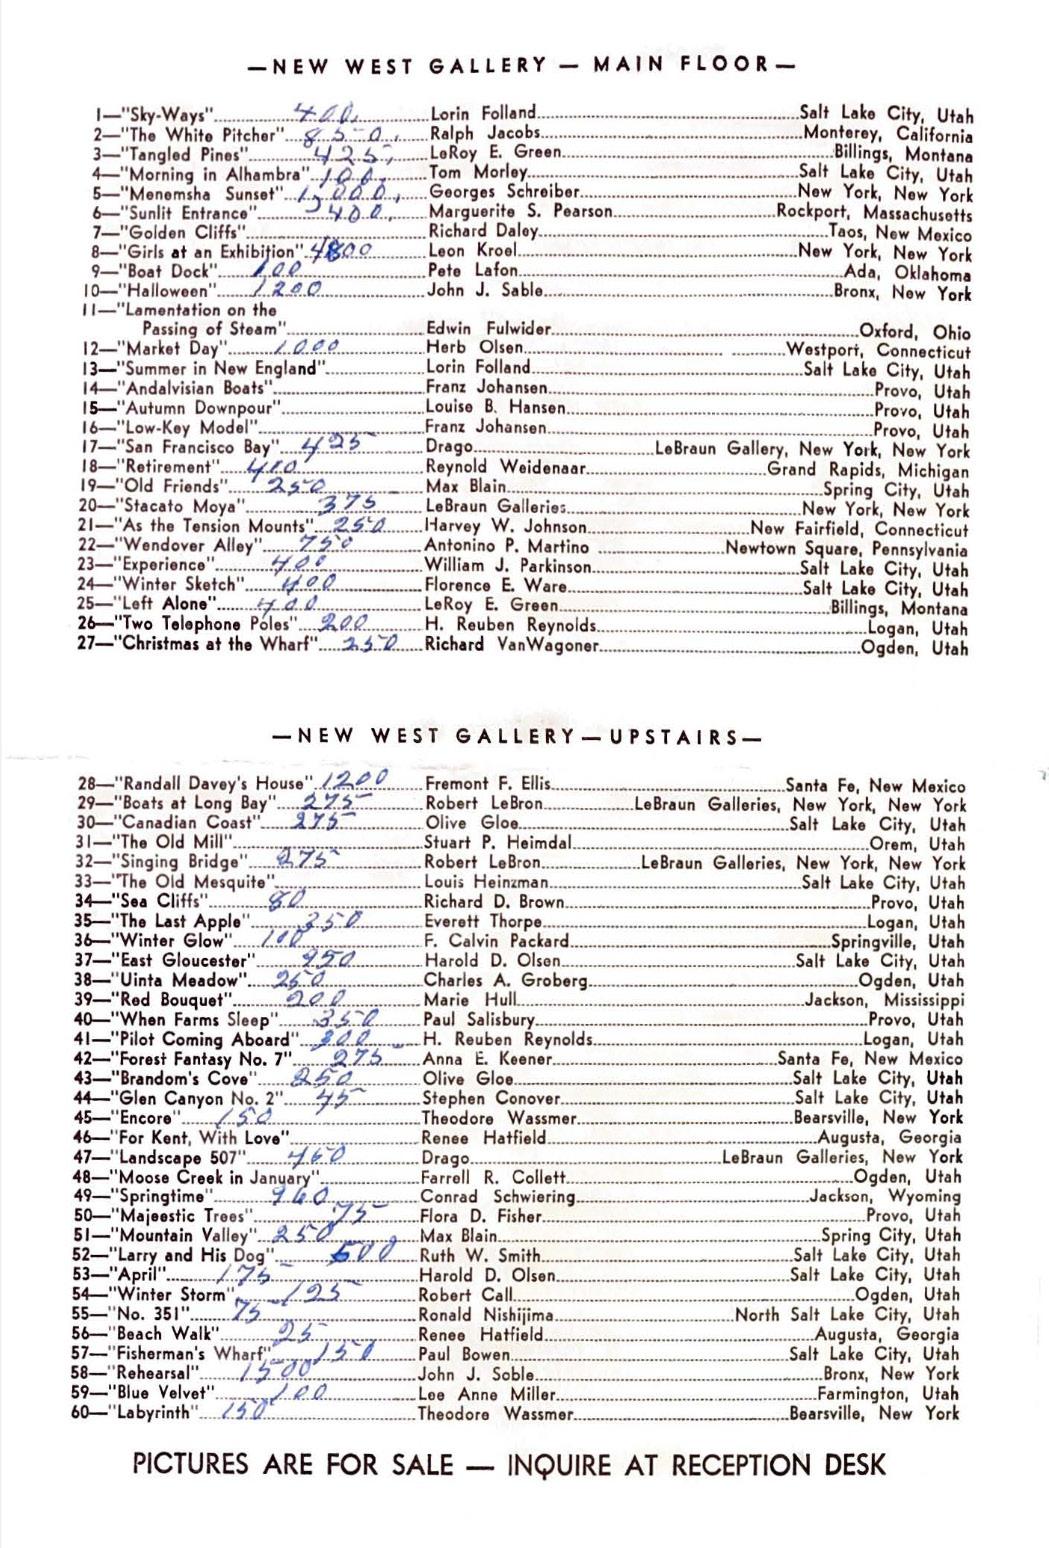 —NEW WEST GALLERY — MAIN FLOOR—
1—"Sky-Ways" 400. Lorin Folland Salt Lake City, Utah
2—"The White Pitcher" 850. Ralph Jacobs Monterey, California
3—"Tangled Pines" 425, LeRoy E. Green Billings, Montana
4—"Morning in Alhambra" 100. Tom Morley Salt Lake City, Utah
5—"Menemsha Sunset" 1,000. Georges Schreiber New York, New York
6—"Sunlit Entrance" 400. Marguerite S. Pearson Rockport, Massachusetts
7—"Golden Cliffs" Richard Daley Taos, New Mexico
8—"Girls at an Exhibition" 4800 Leon Kroel New York, New York
9—"Boat Dock" 100 Pete Lafon Ada, Oklahoma
10—"Halloween" 1200 John J. Sable Bronx, New York
11—"Lamentation on the
Passing of Steam" Edwin Fulwider Oxford, Ohio
12—"Market Day" 1000 Herb Olsen Westport, Connecticut
13—"Summer in New England" Lorin Folland Salt Lake City, Utah
14—"Andalvisian Boats" Franz Johansen Provo, Utah
15—"Autumn Downpour" Louise B. Hansen Provo, Utah
16—"Low-Key Model" Franz Johansen Provo, Utah
17—"San Francisco Bay" 425 Drago LeBraun Gallery, New York, New York
18—"Retirement" Reynold Weidenaar Grand Rapids, Michigan
19—"Old Friends" 250 Max Blain Spring City, Utah
20—"Stacato Moya" 375 LeBraun Galleries New York, New York
21—"As the Tension Mounts" 250 Harvey W. Johnson New Fairfield, Connecticut
22—"Wendover Alley" 750 Antonino P. Martino Newtown Square, Pennsylvania
23—"Experience" 400 William J. Parkinson Salt Lake City, Utah
24—"Winter Sketch" 400 Florence E. Ware Salt Lake City, Utah
25—"Left Alone" 400 LeRoy E. Green Billings, Montana
26—"Two Telephone Poles" 200 H. Reuben Reynolds Logan, Utah
27—"Christmas at the Wharf" 250 Richard VanWagoner Ogden, Utah
—NEW WEST GALLERY—UPSTAIRS—
28—"Randall Davey's House" 1200 Fremont F. Ellis Santa Fe, New Mexico
29—"Boats at Long Bay" 275 Robert LeBron LeBraun Galleries, New York, New York
30—"Canadian Coast" 275 Olive Gloe Salt Lake City, Utah
31—"The Old Mill" Stuart P. Heimdal Orem, Utah
32—"Singing Bridge" 275 Robert LeBron LeBraun Galleries, New York, New York
33—"The Old Mesquite" Louis Heinzman Salt Lake City, Utah
34—"Sea Cliffs" 80 Richard D. Brown Provo, Utah
35—"The Last Apple" 350 Everett Thorpe Logan, Utah
36—"Winter Glow" 100 F. Calvin Packard Springville, Utah
37—"East Gloucester" 250 Harold D. Olsen Salt Lake City, Utah
38—"Uinta Meadow" 250 Charles A. Groberg Ogden, Utah
39—"Red Bouquet" 200 Marie Hull Jackson, Mississippi
40—"When Farms Sleep" 350 Paul Salisbury Provo, Utah
41—"Pilot Coming Aboard" 300 H. Reuben Reynolds Logan, Utah
42—"Forest Fantasy No. 7" 275 Anna E. Keener Santa Fe, New Mexico
43—"Brandom's Cove" 250 Olive Gloe Salt Lake City, Utah
44—"Glen Canyon No. 2" 45 Stephen Conover Salt Lake City, Utah
45—"Encore" 150 Theodore Wassmer Bearsville, New York
46—"For Kent, With Love" Renee Hatfield Augusta, Georgia
47—"Landscape 507" 450 Drago LeBraun Galleries, New York
48—"Moose Creek in January" Farrell R. Collett Ogden, Utah
49—"Springtime" Conrad Schwiering Jackson, Wyoming
50—"Majeestic Trees" 75 Flora D. Fisher Provo, Utah
51—"Mountain Valley" 250 Max Blain Spring City, Utah
52—"Larry and His Dog" 600 Ruth W. Smith Salt Lake City, Utah
53—"April" 175 Harold D. Olsen Salt Lake City, Utah
54—"Winter Storm" 125 Robert Call Ogden, Utah
55—"No. 351" 75 Ronald Nishijima North Salt Lake City, Utah
56—"Beach Walk" 25 Renee Hatfield Augusta, Georgia
57—"Fisherman's Wharf" 150 Paul Bowen Salt Lake City, Utah
58—"Rehearsal" 1500 John J. Soble Bronx, New York
59—"Blue Velvet" 100 Lee Anne Miller Farmington, Utah
60—"Labyrinth" 150 Theodore Wassmer Bearsville, New York
PICTURES ARE FOR SALE — INQUIRE AT RECEPTION DESK